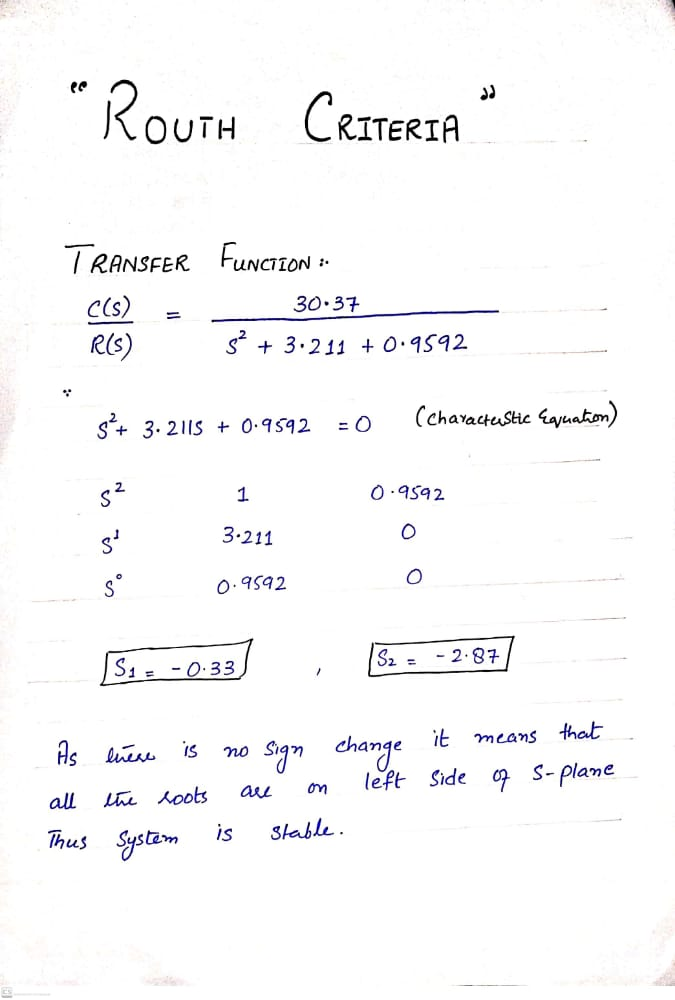 "ROUTH CRITERIA"
TRANSFER FUNCTION :-
C(s)/R(s) = 30.37/(s² + 3.211 + 0.9592)
∵
s² + 3.211s + 0.9592 = 0 (Charactustic Equation)
s² 1 0.9592
s¹ 3.211 0
s⁰ 0.9592 0
S₁ = -0.33 , S₂ = -2.87
As there is no sign change it means that
all the roots are on left side of s-plane
Thus system is stable.
CS